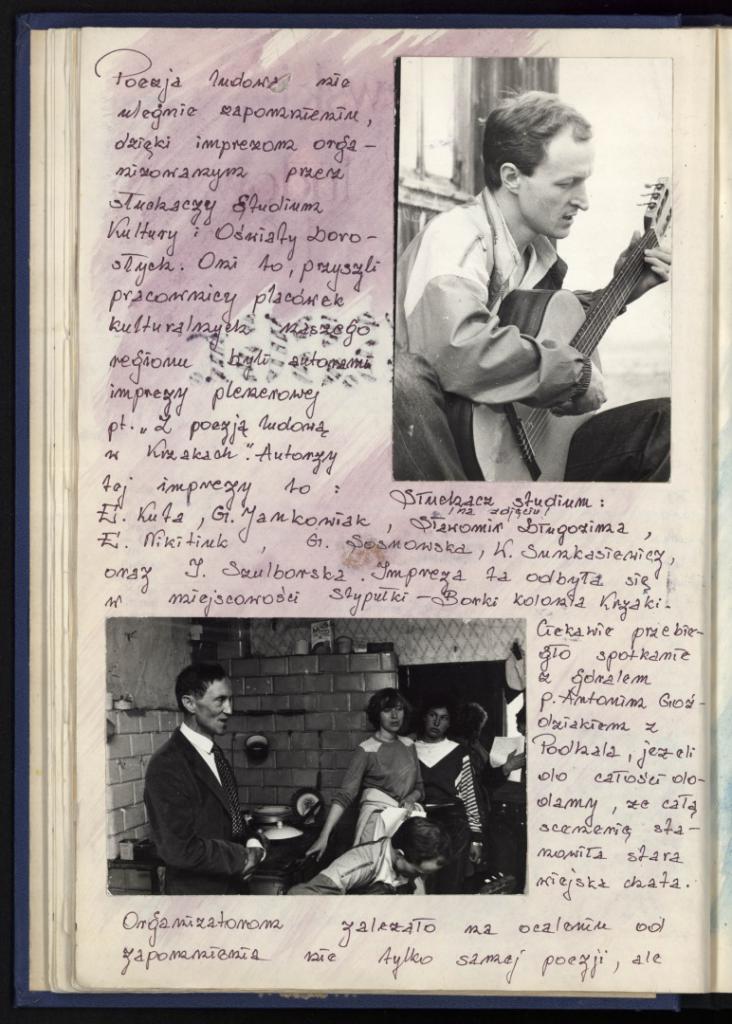 Poezja ludowa nie
ulegnie zapomnieniu,
dzięki imprezom orga-
nizowanym przez
słuchaczy Studium
Kultury i Oświaty Doro-
słych. Oni to, przyszli
pracownicy placówek
kulturalnych naszego
regionu byli autorami
imprezy plenerowej
pt. "Z poezją ludową
w Krzakach". Autorzy
tej imprezy to :
Słuchacz studium :
/na zdjęciu/
E. Kuta, G. Jankowiak, Sławomir Długozima,
E. Nikitiuk, G. Sosnowska, W. Sunkasiewicz,
oraz J. Szulborska. Impreza ta odbyła się
w miejscowości Stypułki - Borki kolonia Krzaki.
Ciekawie przebie-
gło spotkanie
z góralem
p. Antonim Groź-
dziakiem z
Podhala, jeżeli
do całości do-
damy, że całą
scenerię sta-
nowiła stara
wiejska chata.
Organizatorom zależało na ocaleniu od
zapomnienia nie tylko samej poezji, ale